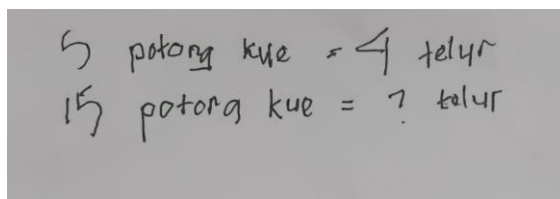 5 potong kue = 4 telur
15 potong kue = ? telur